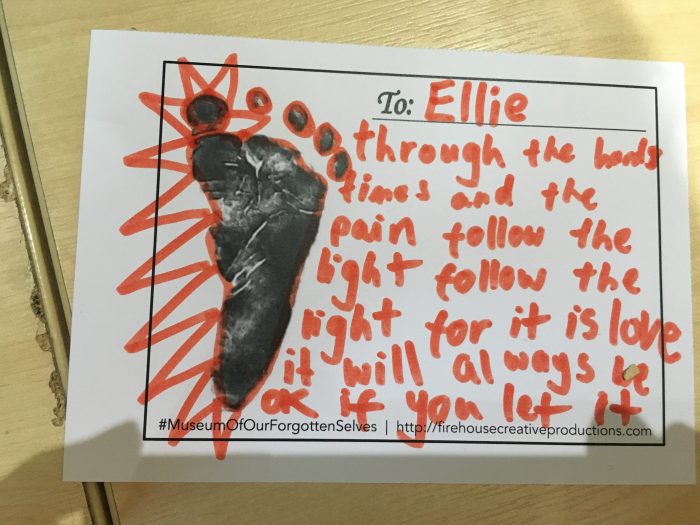 To: Ellie
through the hards
times and the
pain follow the
light follow the
light for it is love
it will always be
ok if you let it
#MuseumOfOurForgottenSelves | http://firehousecreativeproductions.com